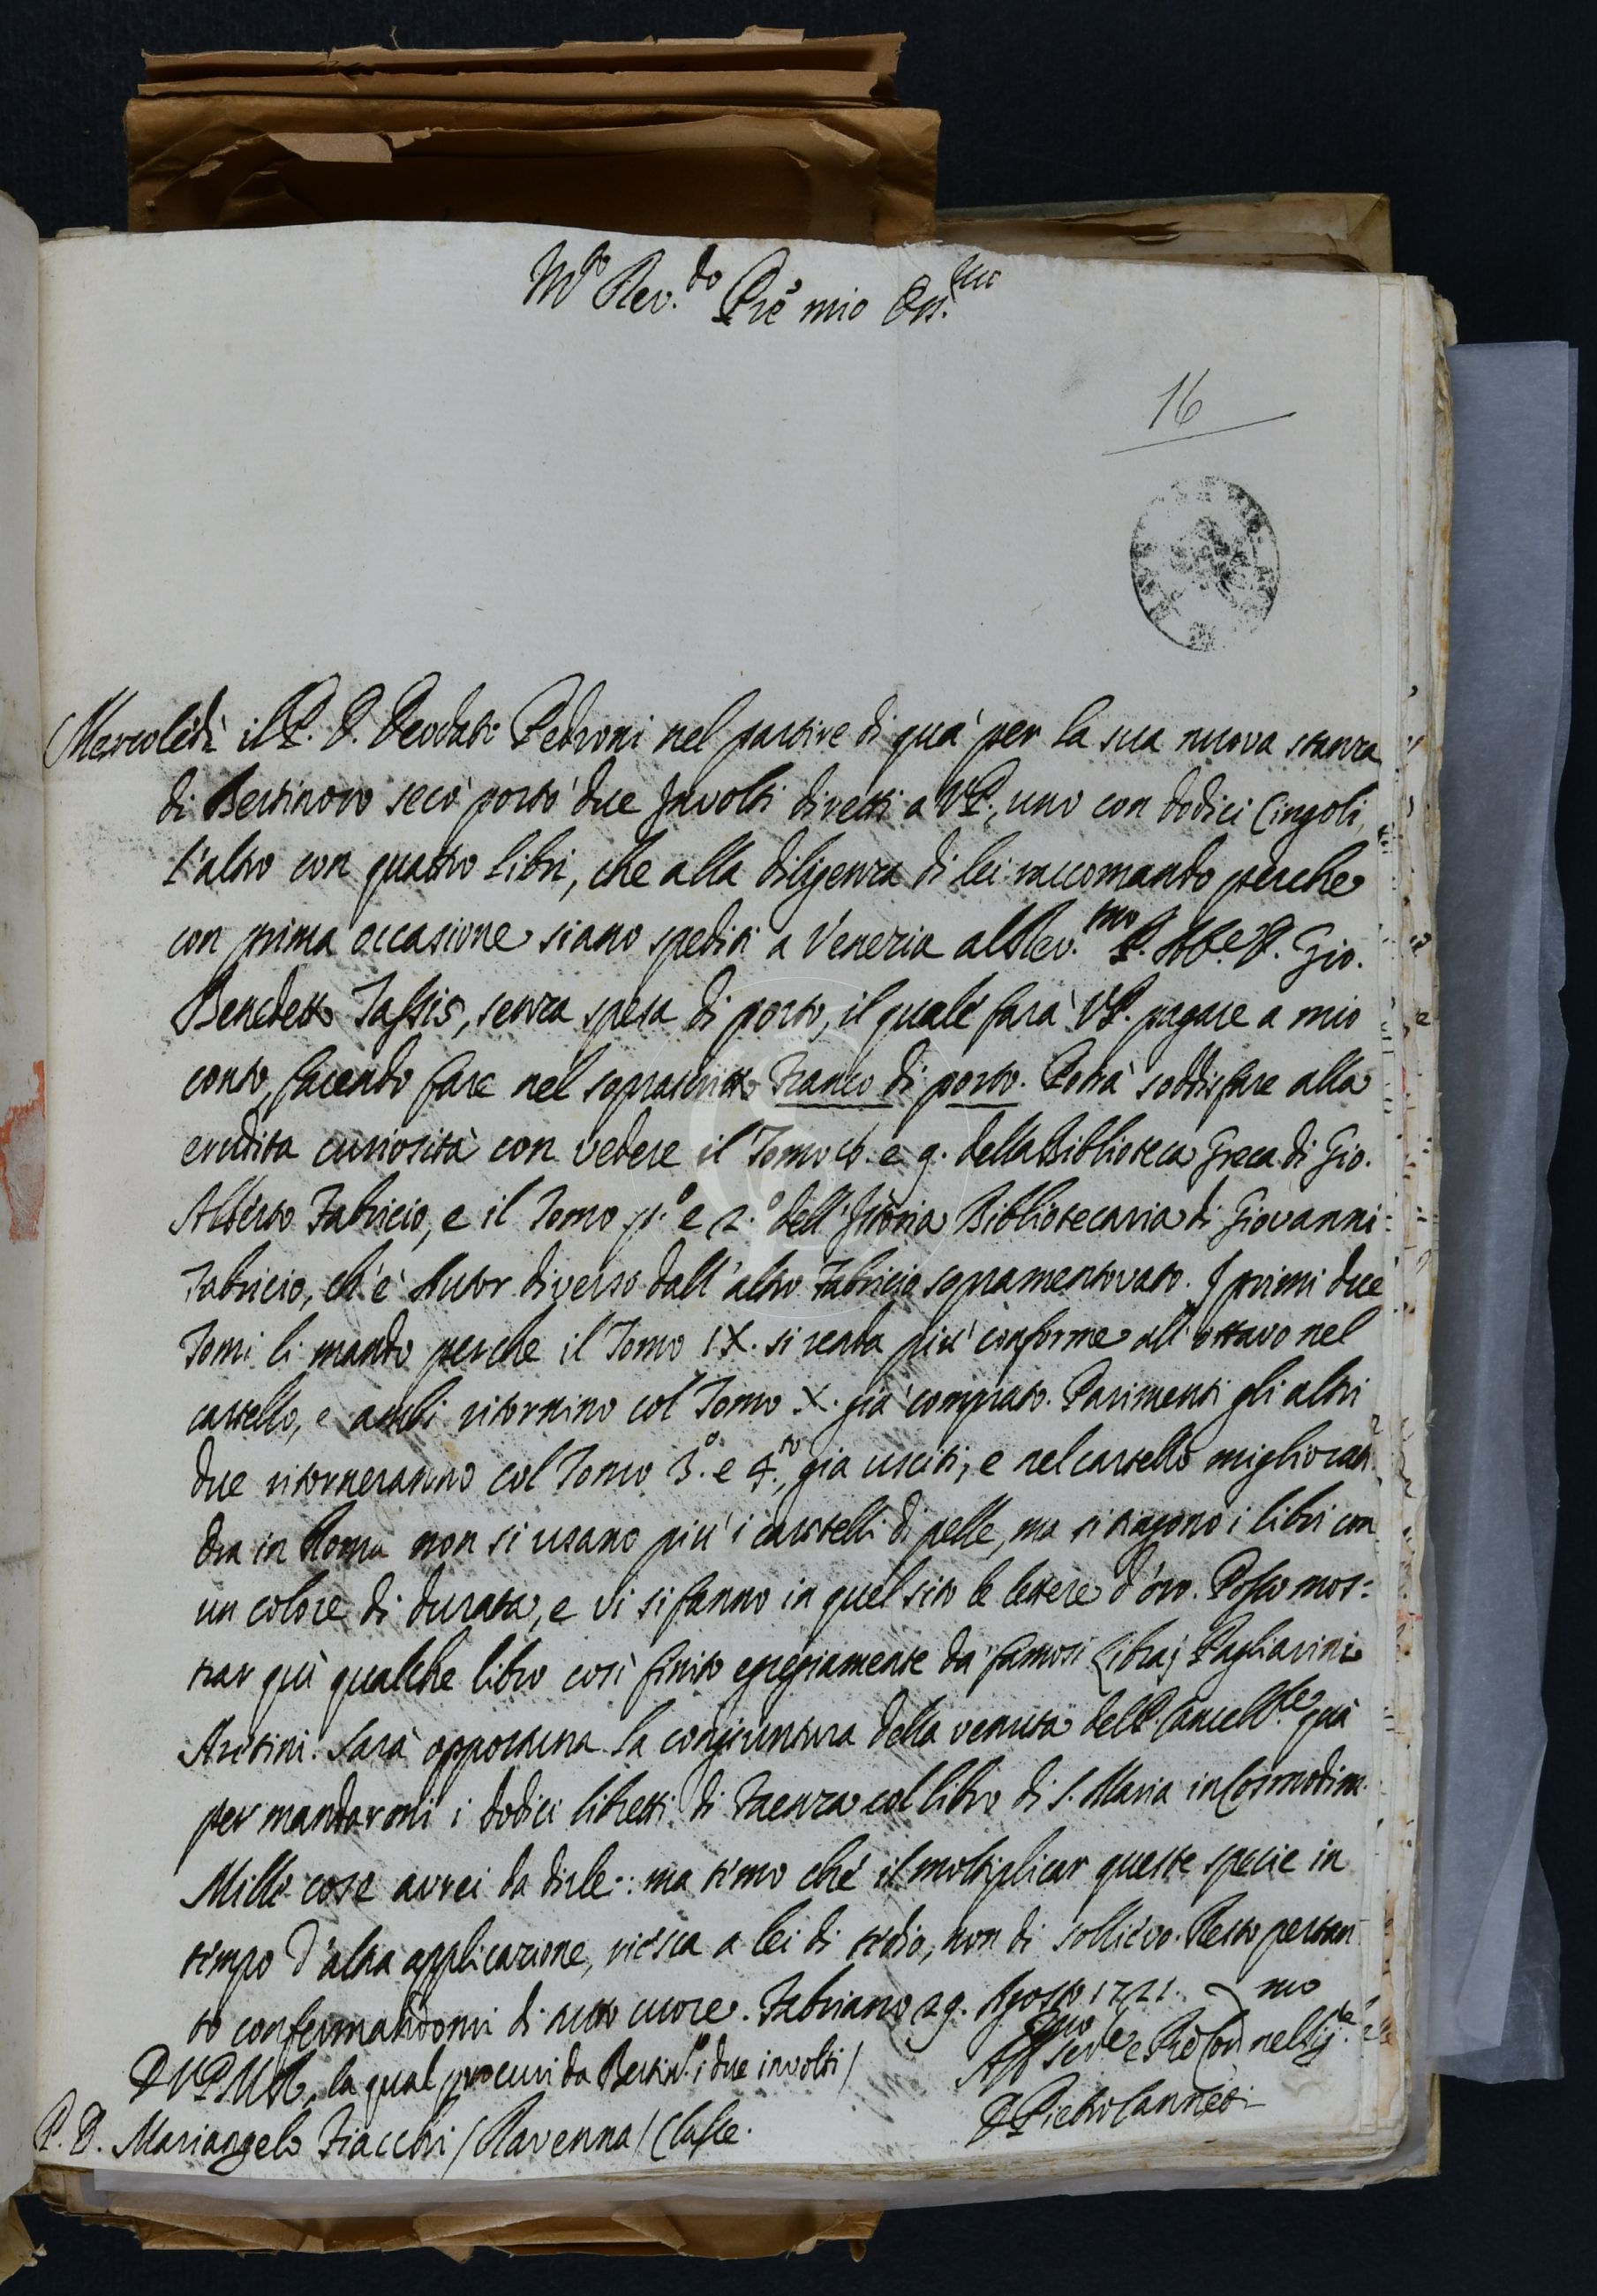 M.to Rev.do Pre mio Oss.mo
16
Mercoledì il P. D. Deodato Pedroni nel partire di quà per la sua nuova stanza
di Bertinoro seco portò due Involti diretti a VP., uno con dodici Cingoli,
l'altro con quattro libri, che alla diligenza di lei raccomando perche
con prima occasione siano spediti a Venezia al Rev.mo P. Ab.e D. Gio.
Benedetto Tassis, senza spesa di porto, il quale farà VP. pagare a mio
conto, facendo fare nel soprascritto franco di porto. Potrà soddisfare alla
erudita curiosità con vedere il Tomo 8. e 9. della Biblioteca Greca di Gio.
Alberto Fabricio, e il Tomo p.o e 2.o dell'Istoria Bibliotecaria di Giovanni
Fabricio, ch'è Autor diverso dall'altro Fabricio sopramentovato. I primi due
Tomi li mando perche il Tomo IX. si renda più conforme all'ottavo nel
cartello, e ambi ritornino col Tomo X. già comprato. Parimenti gli altri
due ritorneranno col Tomo 3.o e 4.to, già usciti, e nel cartello migliorati.
Ora in Roma non si usano più i cartelli di pelle, ma si tingono i libri con
un colore di durata, e vi si fanno in quel sito le lettere d'oro. Posso mos=
trar quì qualche libro così finito egregiamente da' famosi Libraj Pagliarini
Aretini. Sarà opportuna la congiuntura della venuta del P. Cancell.re quà
per mandarmi i dodici libretti di Faenza col libro di S. Maria in Cosmodim.
Mille cose avrei da dirle: ma temo che il moltiplicar queste specie in
tempo d'altra applicazione, riesca a lei di tedio, non di sollievo. Resto pertan
to confermandomi di tutto cuore. Fabriano 29. Agosto 1721.
DVPMR, la qual procuri da Bertin.o i due involti/
Aff.mo Ser.e
D. Pietro Canneti
P. D. Mariangelo Fiacchi / Ravenna / Classe.